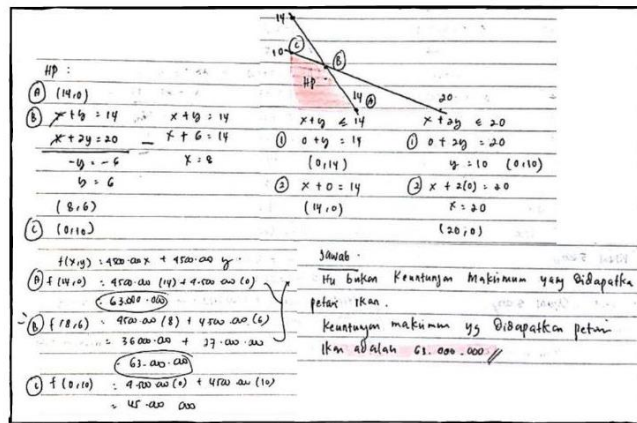 14
10 C
B
HP
14 A
20
HP :
A (14,0)
B x + y = 14 x + y = 14
x + 2y = 20 - x + 6 = 14
-y = -6 x = 8
y = 6
(8,6)
C (0,10)
x+y ≤ 14 x + 2y ≤ 20
1 0 + y = 14 1 0 + 2y = 20
(0,14) y = 10 (0,10)
2 x + 0 = 14 2 x + 2(0) = 20
(14,0) x = 20
(20,0)
f(x,y) = 4500.000x + 4500.000 y.
A f (14,0) = 4500.000 (14) + 4.500.000 (0)
= 63.000.000
B f (8,6) = 4500.000 (8) + 4500.000 (6)
= 36000.000 + 27.000.000
= 63.000.000
C f (0,10) = 4.500.000 (0) + 4500.000 (10)
= 45.000 000
Jawab.
Itu bukan Keuntungan Maksimum yang Didapatka
petani Ikan.
Keuntungan maksimum yg Didapatkan petani
Ikan adalah 63.000.000 //